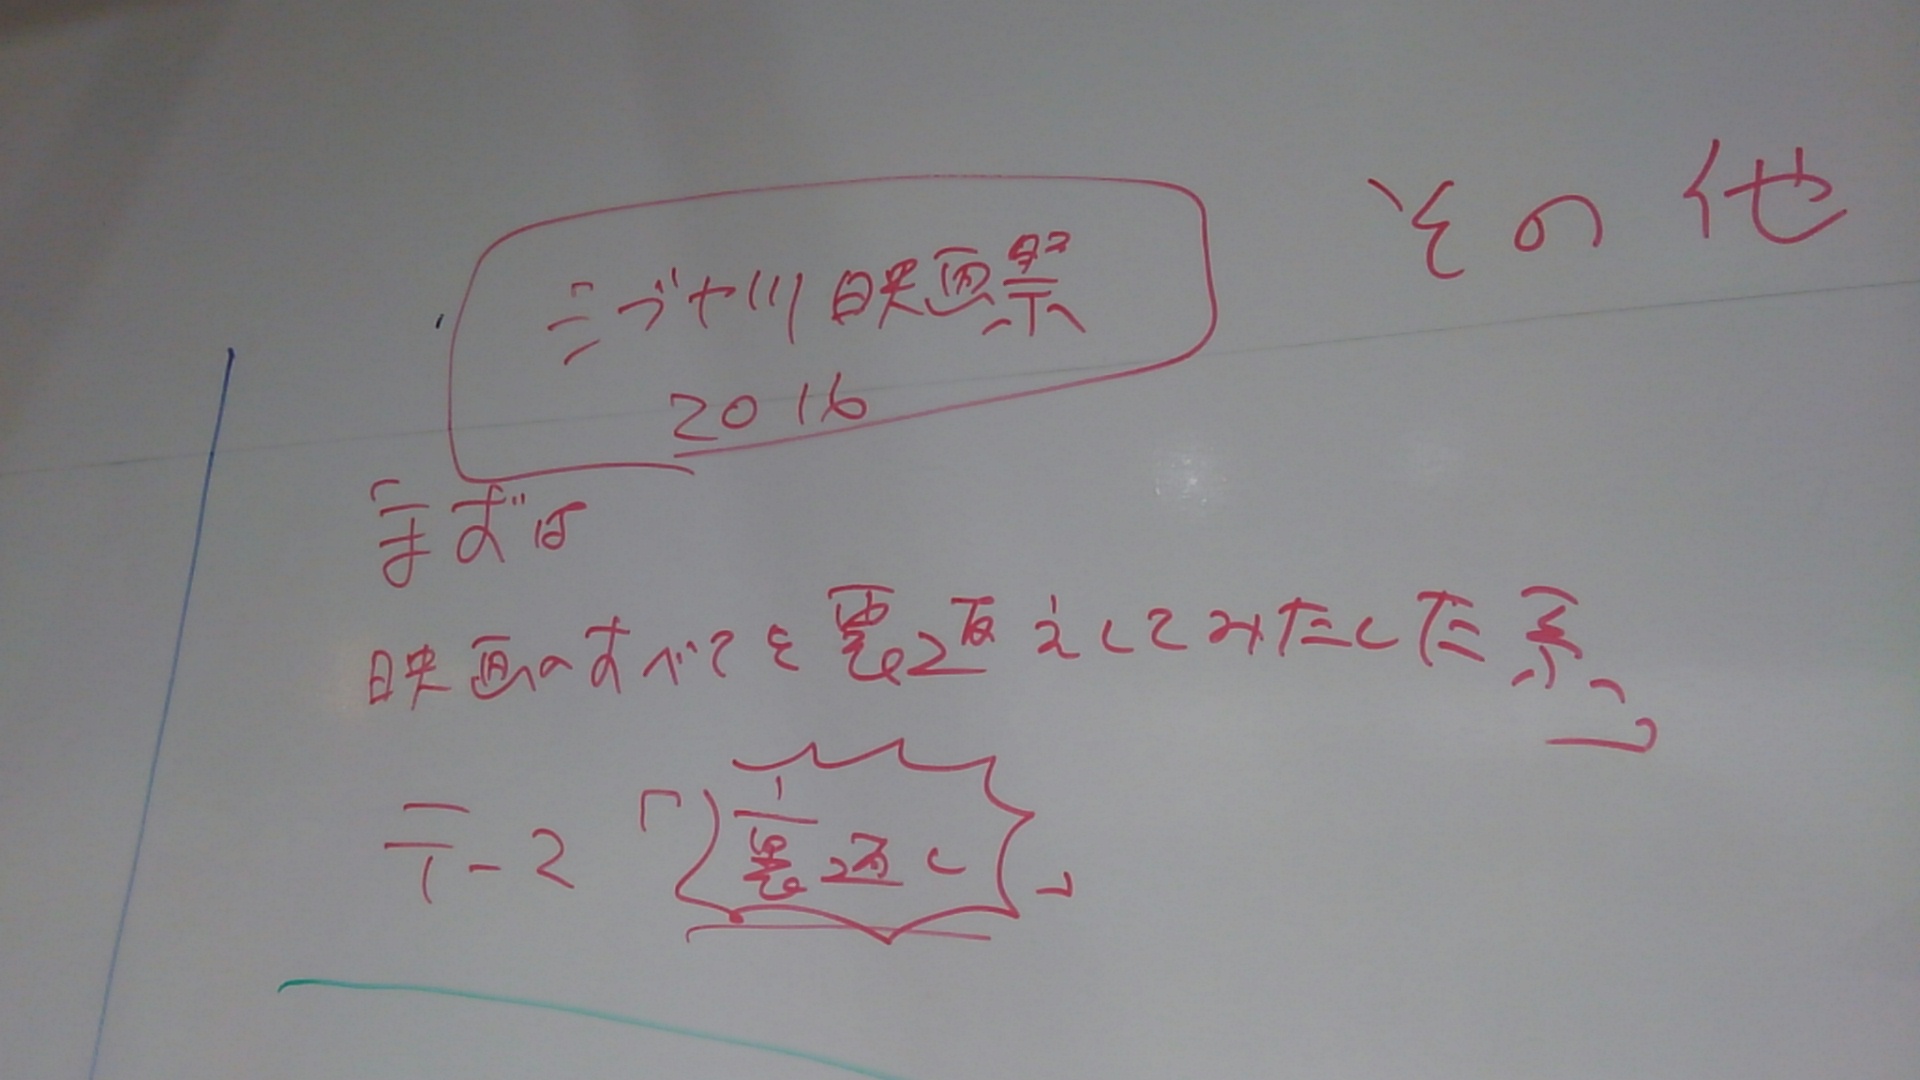 その他
映画祭
2016
「まずは
映画のすべてを裏返えしてみたした系」
テーマ「裏返し」